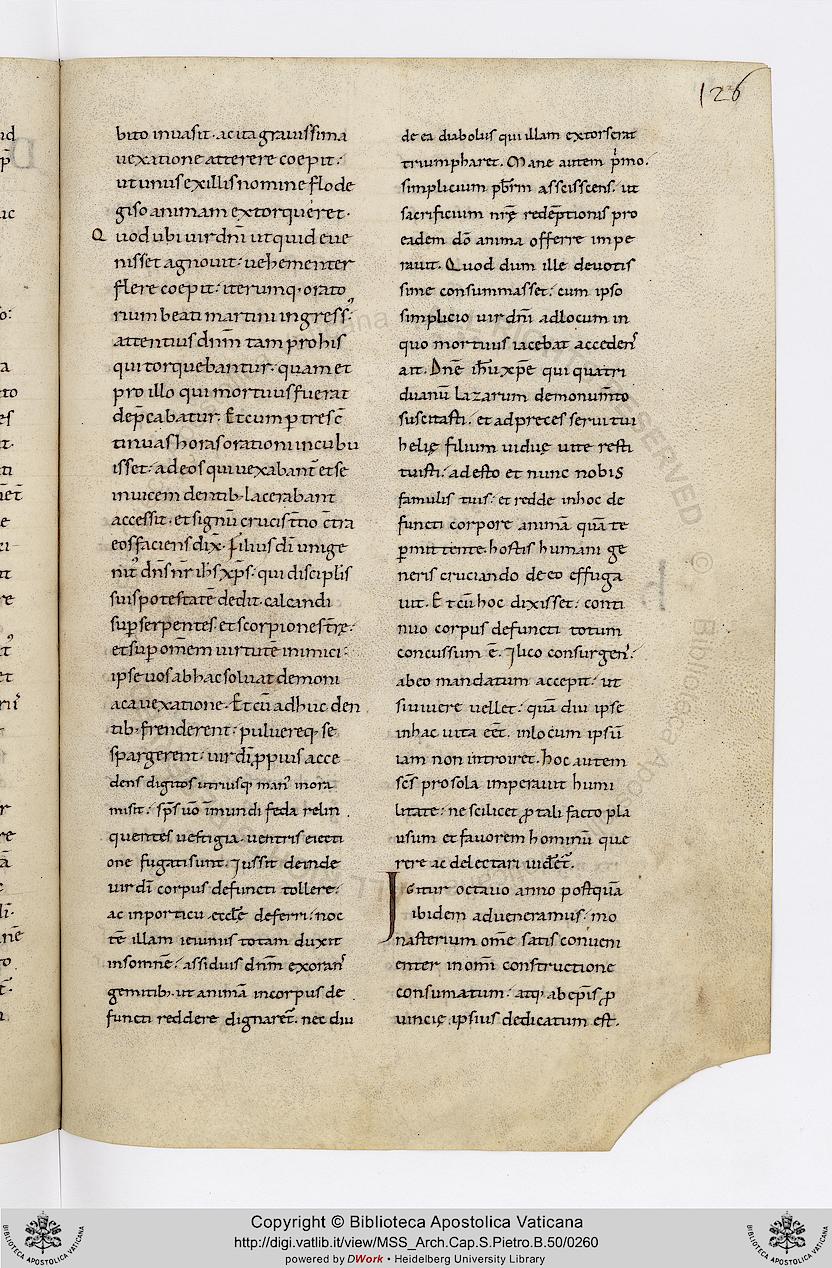 126
bito inuasit· ac ita grauissima
uexatione atterere coepit:
ut unus ex illis nomine flode
giso animam extorqueret·
Quod ubi uir dñi ut quid eue
nisset agnouit: uehementer
flere coepit: iterumq· orato
rium beati martini ingress᾽:
attentius dnm̄ tam pro his
qui torquebantur· quam et
pro illo qui mortuus fuerat
dep̄cabatur· Et cum p̱ tres c̄
tinuas horas orationi incubu
isset: ad eos qui uexabant̄ et se
inuicem dentib· lacerabant
accessit· et signū crucis c̄tra
eos faciens dix̄· filius dī unige
nit᾽ dn̄s nr̄ ih̄s xp̄s· qui disciplis
suis potestatē dedit· calcandi
sup̱ serpentes· et scorpiones t̄re·
et sup̱ omēm uirtutē inimici·
ipse uos ab hac soluat demoni
aca uexatione· Et cū adhuc den
tib· frenderent· puluereq· se
spargerent· uir dī ppius acce
dens digitos utriusq man᾽ in ora
misit: sp̄s uō īmundi feda relin
quentes uestigia uentris eiecti
one fugati sunt· Jussit deinde
uir dī corpus defuncti tollere:
ac in porticu eccłe deferri: noc
tē illam ieiunus totam duxit
insomnē: assiduis dnm̄ exoran᾽
gemitib· ut animā in corpus de
functi reddere dignaret̄· nec diu
de ea diabolus qui illam extorserat
triumpharet. Mane autem p̓mo·
simplicium pbr̄m asscisscens· ut
sacrificium nrę̄ redēptionis pro
eadem dō anima offerre impe
rauit. Quod dum ille deuotis
sime consummasset: cum ipso
simplicio uir dn̄i ad locum in
quo mortuus iacebat acceden᾽
ait. Dn̄e ih̄u xp̄e qui quatri
duanū lazarum de monumt̄o
suscitasti· et ad preces serui tui
helię filium uiduę uite resti
tuisti: adesto et nunc nobis
famulis tuis: et redde in hoc de
functi corpore animā quā te
p̱mittente hostis humani ge
neris cruciando de eo effuga
uit· Et cū hoc dixisset: conti
nuo corpus defuncti totum
concussum ē· Ilico consurgen᾽:
ab eo mandatum accepit: ut
si uiuere uellet: quā diu ipse
in hac uita eēt· in locum ipsū
iam non introiret· hoc autem
sc̄s pro sola imperauit humi
litate: ne scilicet p̱ tali facto pla
usum et fauorem hominū que
rere ac delectari uideret̄.
Igitur octauo anno postquā
ibidem adueneramus: mo
nasterium omē satis conueni
enter in omī constructione
consumatum: atq· ab ep̄is p̱
uincię ipsius dedicatum est.
Copyright © Biblioteca Apostolica Vaticana
http://digi.vatlib.it/view/MSS_Arch.Cap.S.Pietro.B.50/0260
powered by DWork • Heidelberg University Library